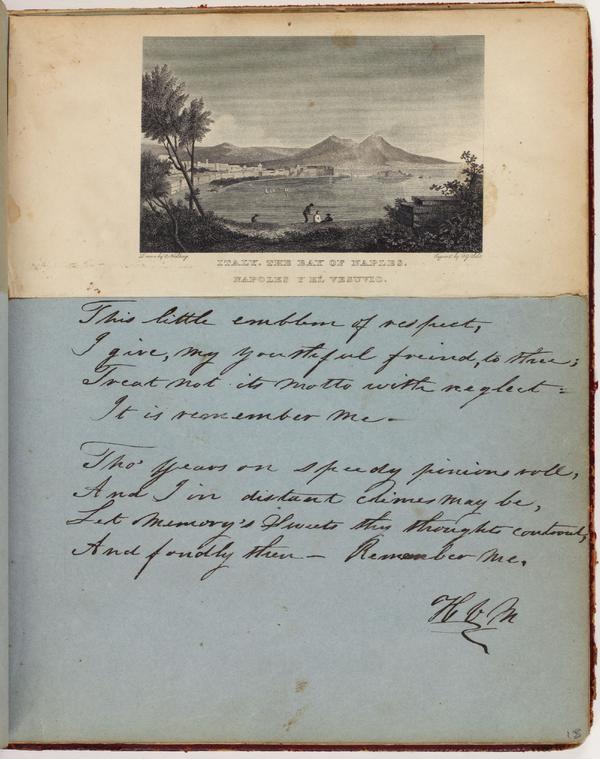 Drawn by
Engrav'd by
ITALY. THE BAY OF NAPLES.
NAPOLES Y EL VESUVIO.
This little emblem of respect,
I give, my youthful freind, to thee;
Treat not its motto with neglect =
It is remember me —
Tho' Years on speedy pinions roll,
And I in distant climes may be,
Let Memory's Sweets thy thoughts controul,
And fondly then — Remember Me.
H V M
18